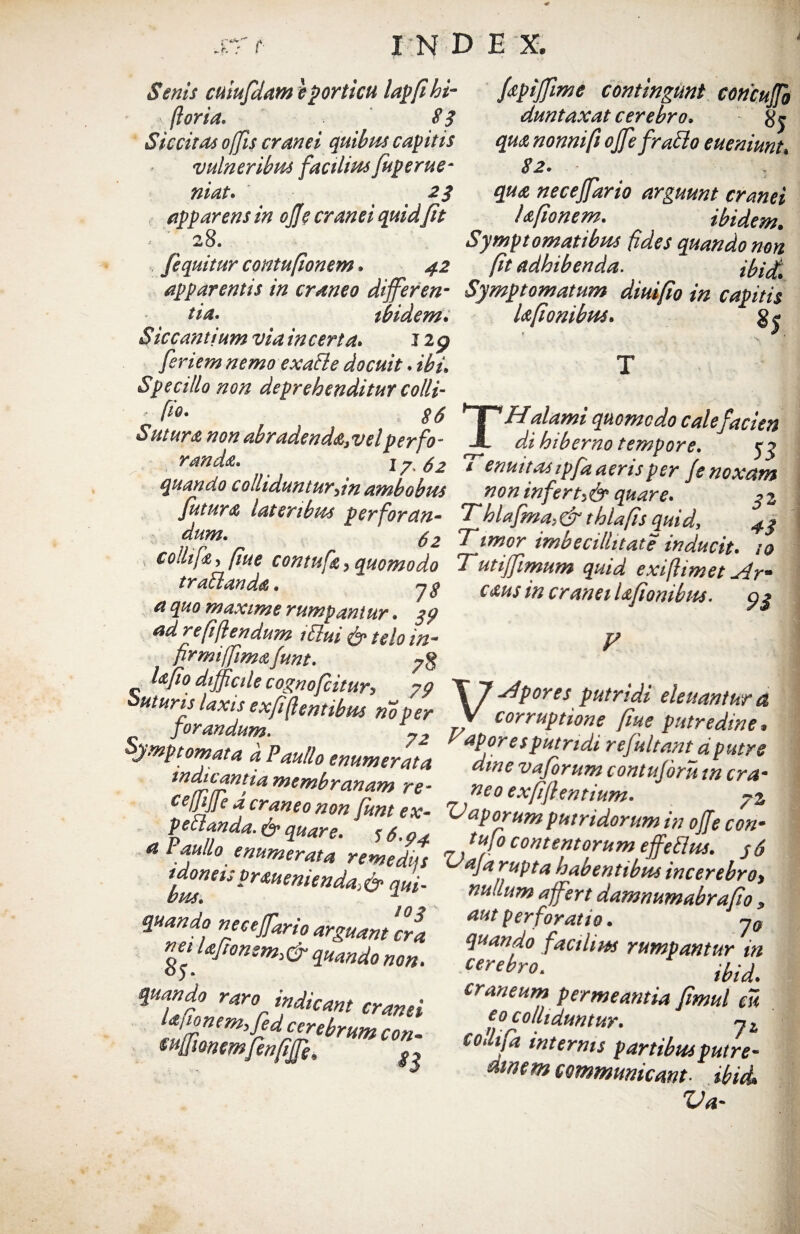 INDEX.
Senis cuiusdam è porticu lapsi hi-
storia. 83
Siccitas ossis cranei quibus capitis
vulneribus facilius superue-
niat. 23
apparens in osse cranei quid sit
28.
sequitur contusionem. 42
apparentis in craneo differen-
tia. ibidem.
Siccantium via incerta. 129
seriem nemo exacte docuit. ibi.
Specillo non deprehenditur colli-
sio. 86
Suturæ non abradendæ, vel perfo-
randæ. 17. 62
quando colliduntur, in ambobus
suturæ lateribus perforan-
dum. 62
collisæ, siue contusæ, quomodo
tractandæ. 78
a quo maxime rumpantur. 39
ad resistendum ictui & telo in-
firmissimæ sunt. 78
læsio difficile cognoscitur, 79
Suturis laxis exsistentibus nō per
forandum. 72
Symptomata à Paullo enumerata
indicantia membranam re-
cessisse à craneo non sunt ex-
pectanda. & quare. 56. 94
a Paullo enumerata remedijs
idoneis præuenienda, & qui-
bus. 103
quando necessario arguant cra
nei læsionem, & quando non.
85.
quando raro indicant cranei
læsionem, sed cerebrum con-
cussionem sensisse. 83
sæpissime contingunt concusso
duntaxat cerebro. 85
quæ nonnisi osse fracto eueniunt.
82.
quæ necessario arguunt cranei
læsionem. ibidem.
Symptomatibus fides quando non
sit adhibenda. ibid.
Symptomatum diuisio in capitis
læsionibus. 85
T
THalami quomodo calefacien
di hiberno tempore. 53
Tenuitas ipsa aeris per se noxam
non infert, & quare. 32
Thlasma, & thlasis quid, 43
Timor imbecillitatē inducit. 10
Tutissimum quid existimet Ar-
cæus in cranei læsionibus. 93
V
VApores putridi eleuantur à
corruptione siue putredine.
Vapores putridi resultant à putre
dine vasorum contusorū in cra-
neo exsistentium. 72
Vaporum putridorum in osse con-
tuso contentorum effectus. 56
Vasa rupta habentibus in cerebro,
nullum affert damnum abrasio,
aut perforatio. 70
quando facilius rumpantur in
cerebro. ibid.
craneum permeantia simul cū
eo colliduntur. 72
collisa internis partibus putre-
dinem communicant. ibid.
Va-